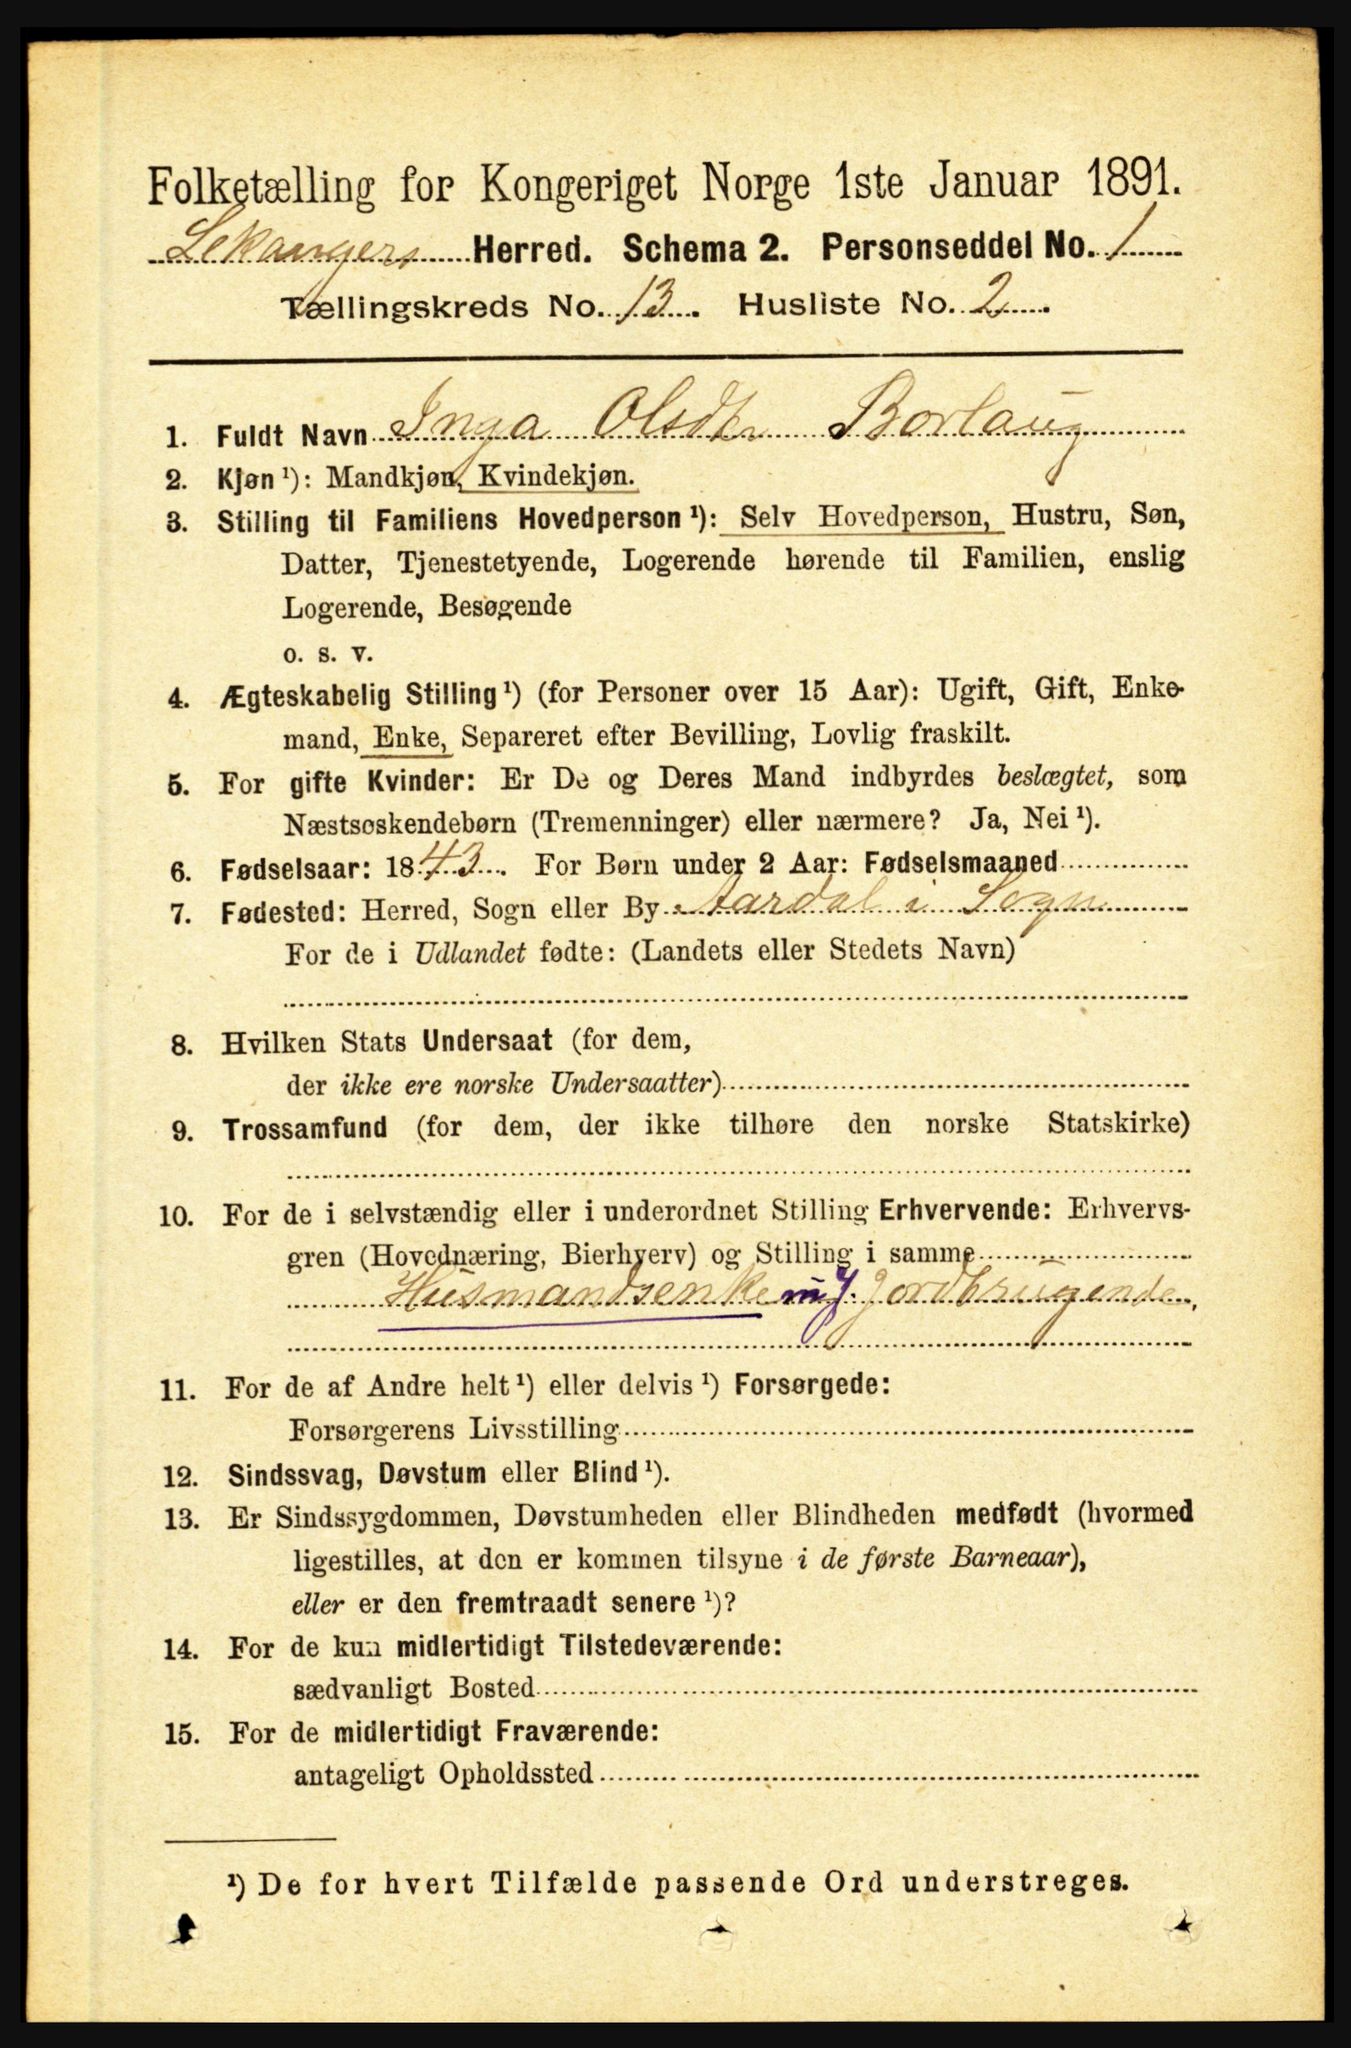 Folketælling for Kongeriget Norge 1ste Januar 1891.
Lekangers Herred. Schema 2. Personseddel No. 1
Tællingskreds No. 13. Husliste No. 2.
1. Fuldt Navn Inga Olsdtr Borlaug
2. Kjøn ¹): Mandkjøn, Kvindekjøn.
3. Stilling til Familiens Hovedperson ¹): Selv Hovedperson, Hustru, Søn,
Datter, Tjenestetyende, Logerende hørende til Familien, enslig
Logerende, Besøgende
o. s. v.
4. Ægteskabelig Stilling ¹) (for Personer over 15 Aar): Ugift, Gift, Enke-
mand, Enke, Separeret efter Bevilling, Lovlig fraskilt.
5. For gifte Kvinder: Er De og Deres Mand indbyrdes beslægtet, som
Næstsøskendebørn (Tremenninger) eller nærmere? Ja, Nei ¹).
6. Fødselsaar: 1843. For Børn under 2 Aar: Fødselsmaaned
7. Fødested: Herred, Sogn eller By Aardal i Sogn
For de i Udlandet fødte: (Landets eller Stedets Navn)
8. Hvilken Stats Undersaat (for dem,
der ikke ere norske Undersaatter)
9. Trossamfund (for dem, der ikke tilhøre den norske Statskirke)
10. For de i selvstændig eller i underordnet Stilling Erhvervende: Erhvervs-
gren (Hovednæring, Bierhverv) og Stilling i samme
Husmandsenke m J. Jordbrugende,
11. For de af Andre helt ¹) eller delvis ¹) Forsørgede:
Forsørgerens Livsstilling
12. Sindssvag, Døvstum eller Blind ¹).
13. Er Sindssygdommen, Døvstumheden eller Blindheden medfødt (hvormed
ligestilles, at den er kommen tilsyne i de første Barneaar),
eller er den fremtraadt senere ¹)?
14. For de kun midlertidigt Tilstedeværende:
sædvanligt Bosted
15. For de midlertidigt Fraværende:
antageligt Opholdssted
¹) De for hvert Tilfælde passende Ord understreges.